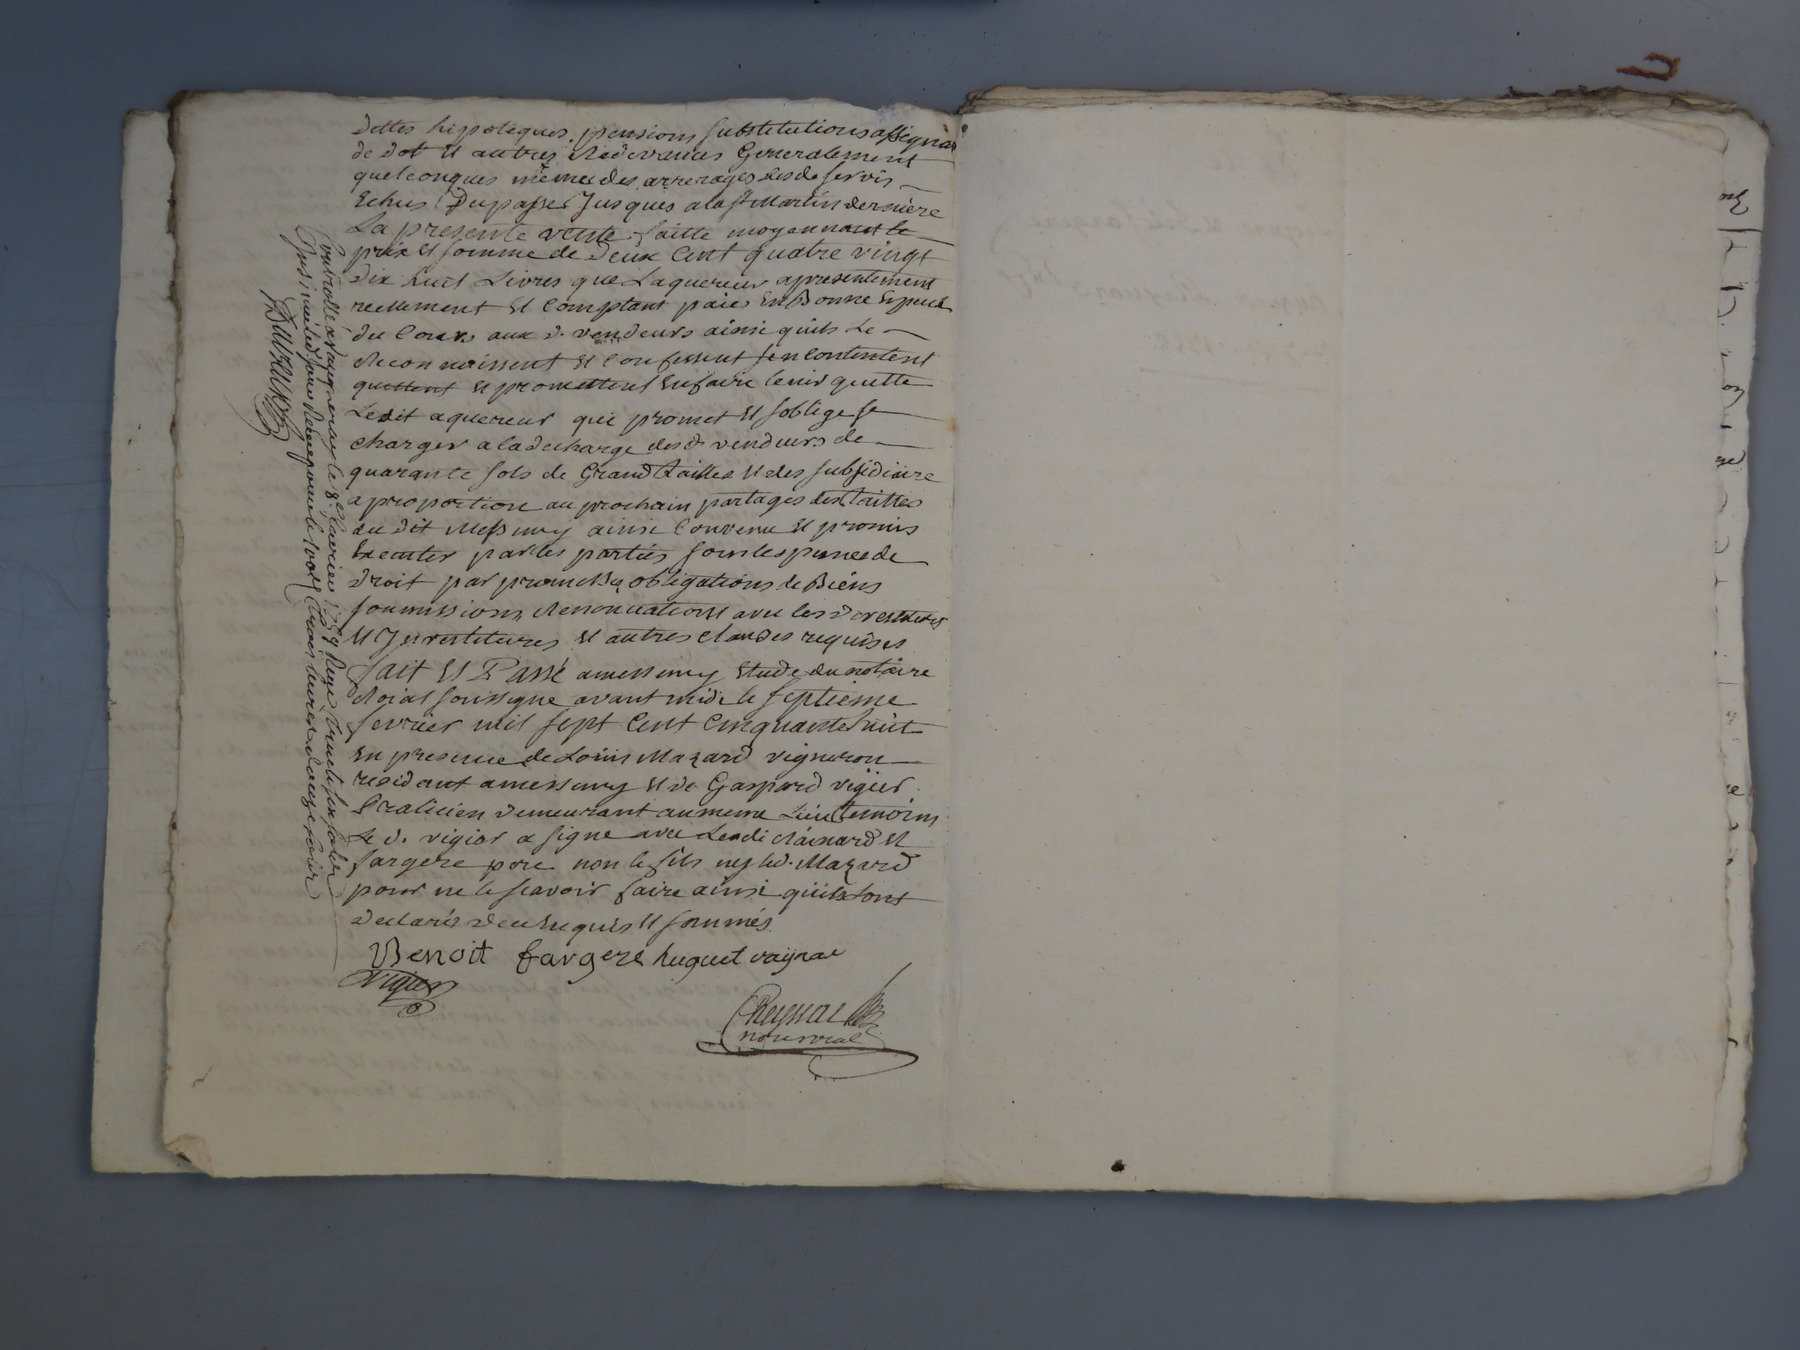 dettes hipoteques, pensions substitutions assignaõn
de dot et autres Redevances Generalement
quelconques même des arrerages des de servis
Echus Dupassé Jusques a la st Martin derniere
La presente vente faitte moyennant le
prix et somme de Deux Cent quatre vingt
dix huit Livres que Laquereur a presentement
reellement et Comptant paié En Bonne Espece
du Cours aux d. vendeurs ainsi quils Le
Reconnoissent et Confessent s'en Contentent
quittent et promettent En faire tenir quitte
Ledit aquereur qui promet et soblige se
charger a la decharge desd. vendeurs de
quarante sols de Grand tailles et des subsidiaire
a proportion au prochain partages des tailles
du dit Messimy ainsi Convenu et promis
Executer par les parties sous les peines de
droit par promesses obligations de Biens
soumissions Renonciations avec les devestitures
et Investitures et autres clauses requises
fait et Passé a messimy Etude du notaire
Roial soussigne avant midi le septieme
fevrier mil sept Cent Cinquante huit
En presence de Louis Mazard vigneron
residant a messimy et de Gaspard vigier
Praticien demeurant au meme Lieu temoins
Le d. vigier a signe avec Lesdi Rainard et
fargere pere non le fils ny led. Mazard
pour ne le scavoir faire ainsi quils ont
declarés de ce Enquis et sommés
Benoit fargere huguet raynar
Vigier
Reynar
no.re roial
Controllé a Vaugneray le 8e fevrier 17
Insinué led. jour Reçu pour le 100e trois livres douze sols